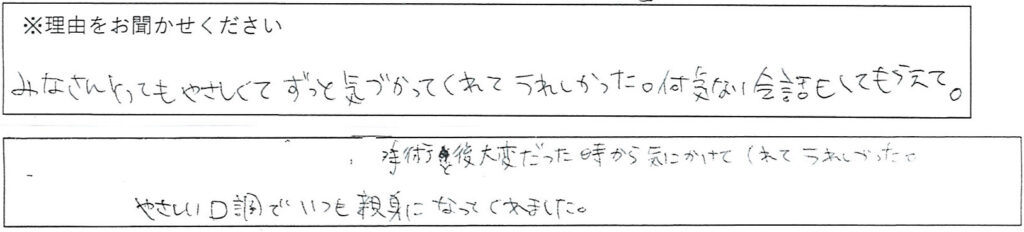 ※理由をお聞かせください
みなさんとってもやさしくて ずっと気づかってくれて うれしかった。何気ない会話もしてもらえて。
手術後大変だった時から気にかけてくれて うれしかった。
やさしい口調で いつも親身になってくれました。